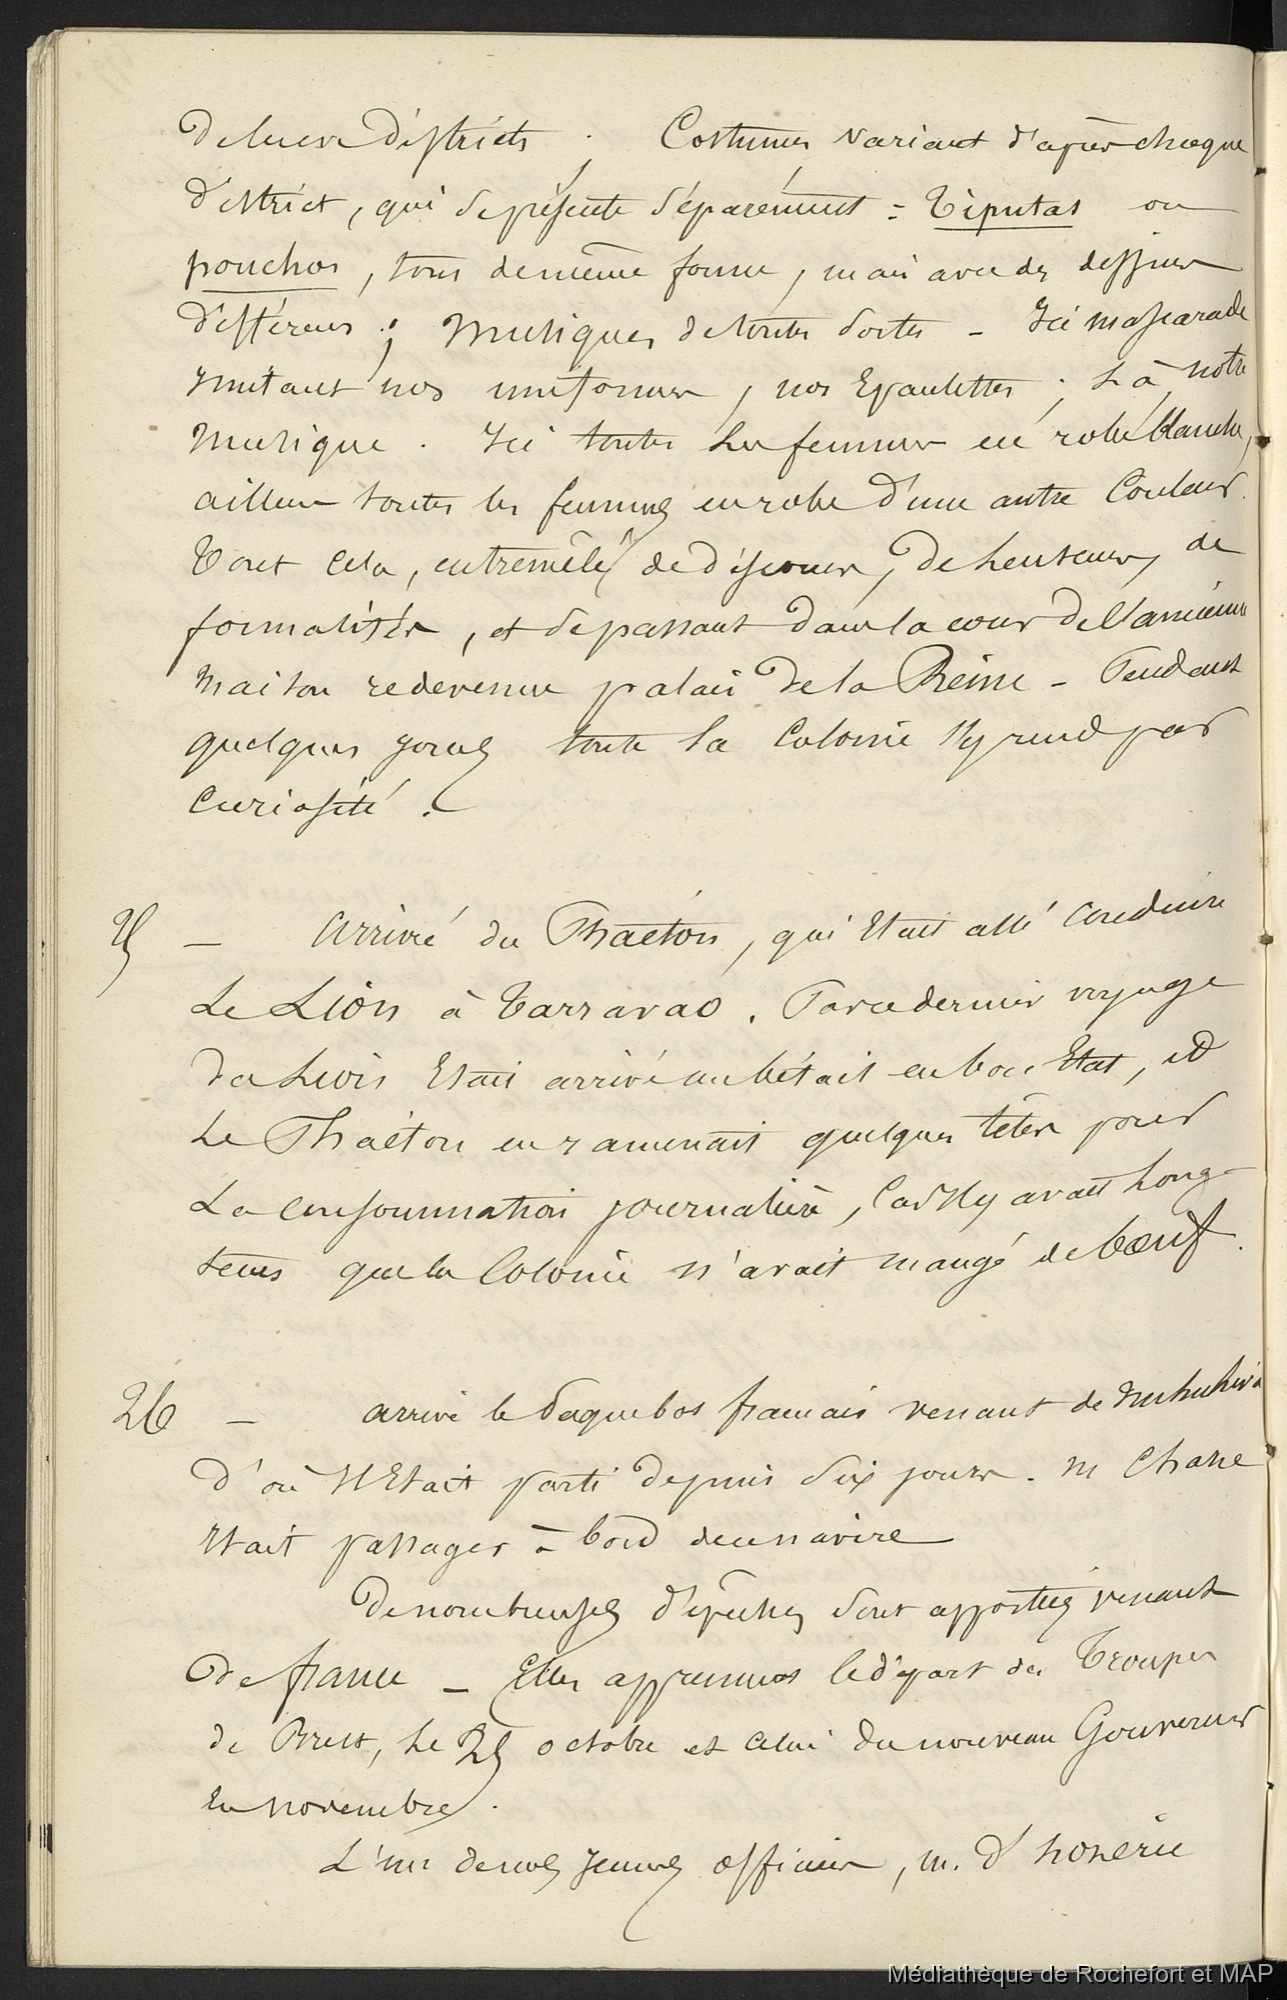 de leurs districts ; Costumes variant d'après chaque
district, qui se présente séparément = Tiputas ou
ponchos, tous de même forme, mais avec des dessins
différens ; Musiques de toutes sortes - Ici mascarade
imitant nos uniformes, nos Epaulettes ; Là, notre
Musique. Ici toutes les femmes en robe blanche,
ailleurs toutes les femmes en robe d'une autre Couleur.
Tout cela, entremêlé de discours, de lenteurs, de
formalités, et se passant dans la cour de l'ancienne
Maison redevenue palais de la Reine - Pendant
quelques jours toute la Colonie s'y rend par
Curiosité.
25 - Arrivé du Phaéton, qui Etait allé conduire
Le Lion à Tarravao. Par ce dernier voyage
Etait arrivé au bétail en bon Etat, et
Le Phaéton en ramenait quelques têtes pour
La consommation journalière, Car Il y avait Long-
tems que la Colonie n'avait mangé de bœuf.
26 - arrive le paquebos français venant de Nuhuhiva
d'où Il Etait parti depuis six jours. M Chane
Etait passager à bord de ce navire
De nombreuses dépêches sont apportées venant
De france - Elles apprennent le départ des Troupes
de Brest, Le 25 octobre et celui du nouveau Gouverneur
En novembre.
L'un de nos jeunes officiers, M. d'